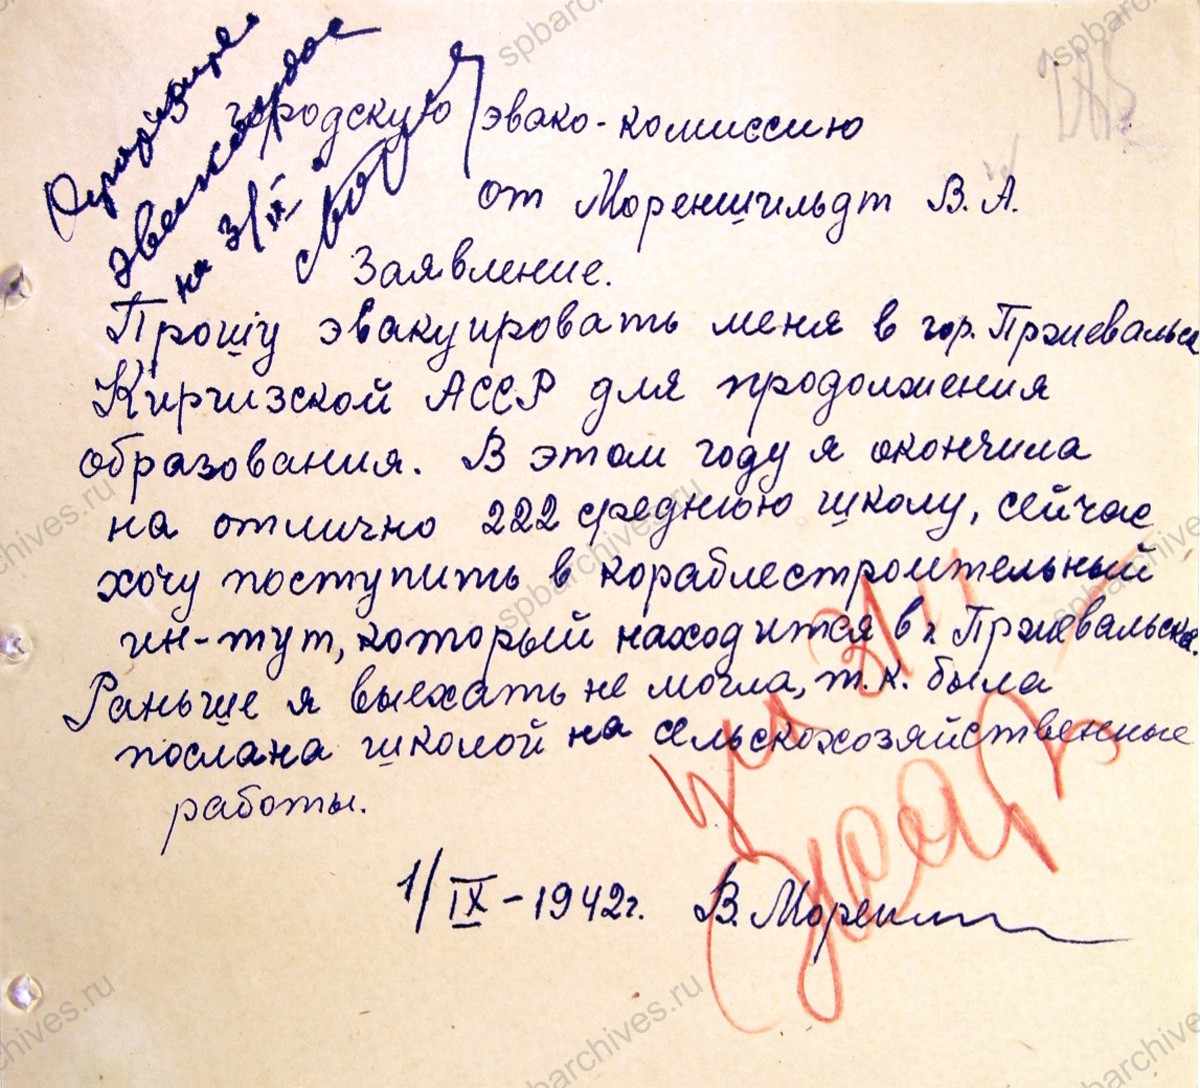 городскую эвако-комиссию
от Мореншильдт В. А.
Заявление.
Прошу эвакуировать меня в гор. Пржевальск
Киргизской АССР для продолжения
образования. В этом году я окончила
на отлично 222 среднюю школу, сейчас
хочу поступить в кораблестроительный
ин-тут, который находится в г. Пржевальске.
Раньше я выехать не могла, т.к. была
послана школой на сельскохозяйственные
работы.
1/IX-1942г. В. Морен
на 3/IX
spbarchives.ru